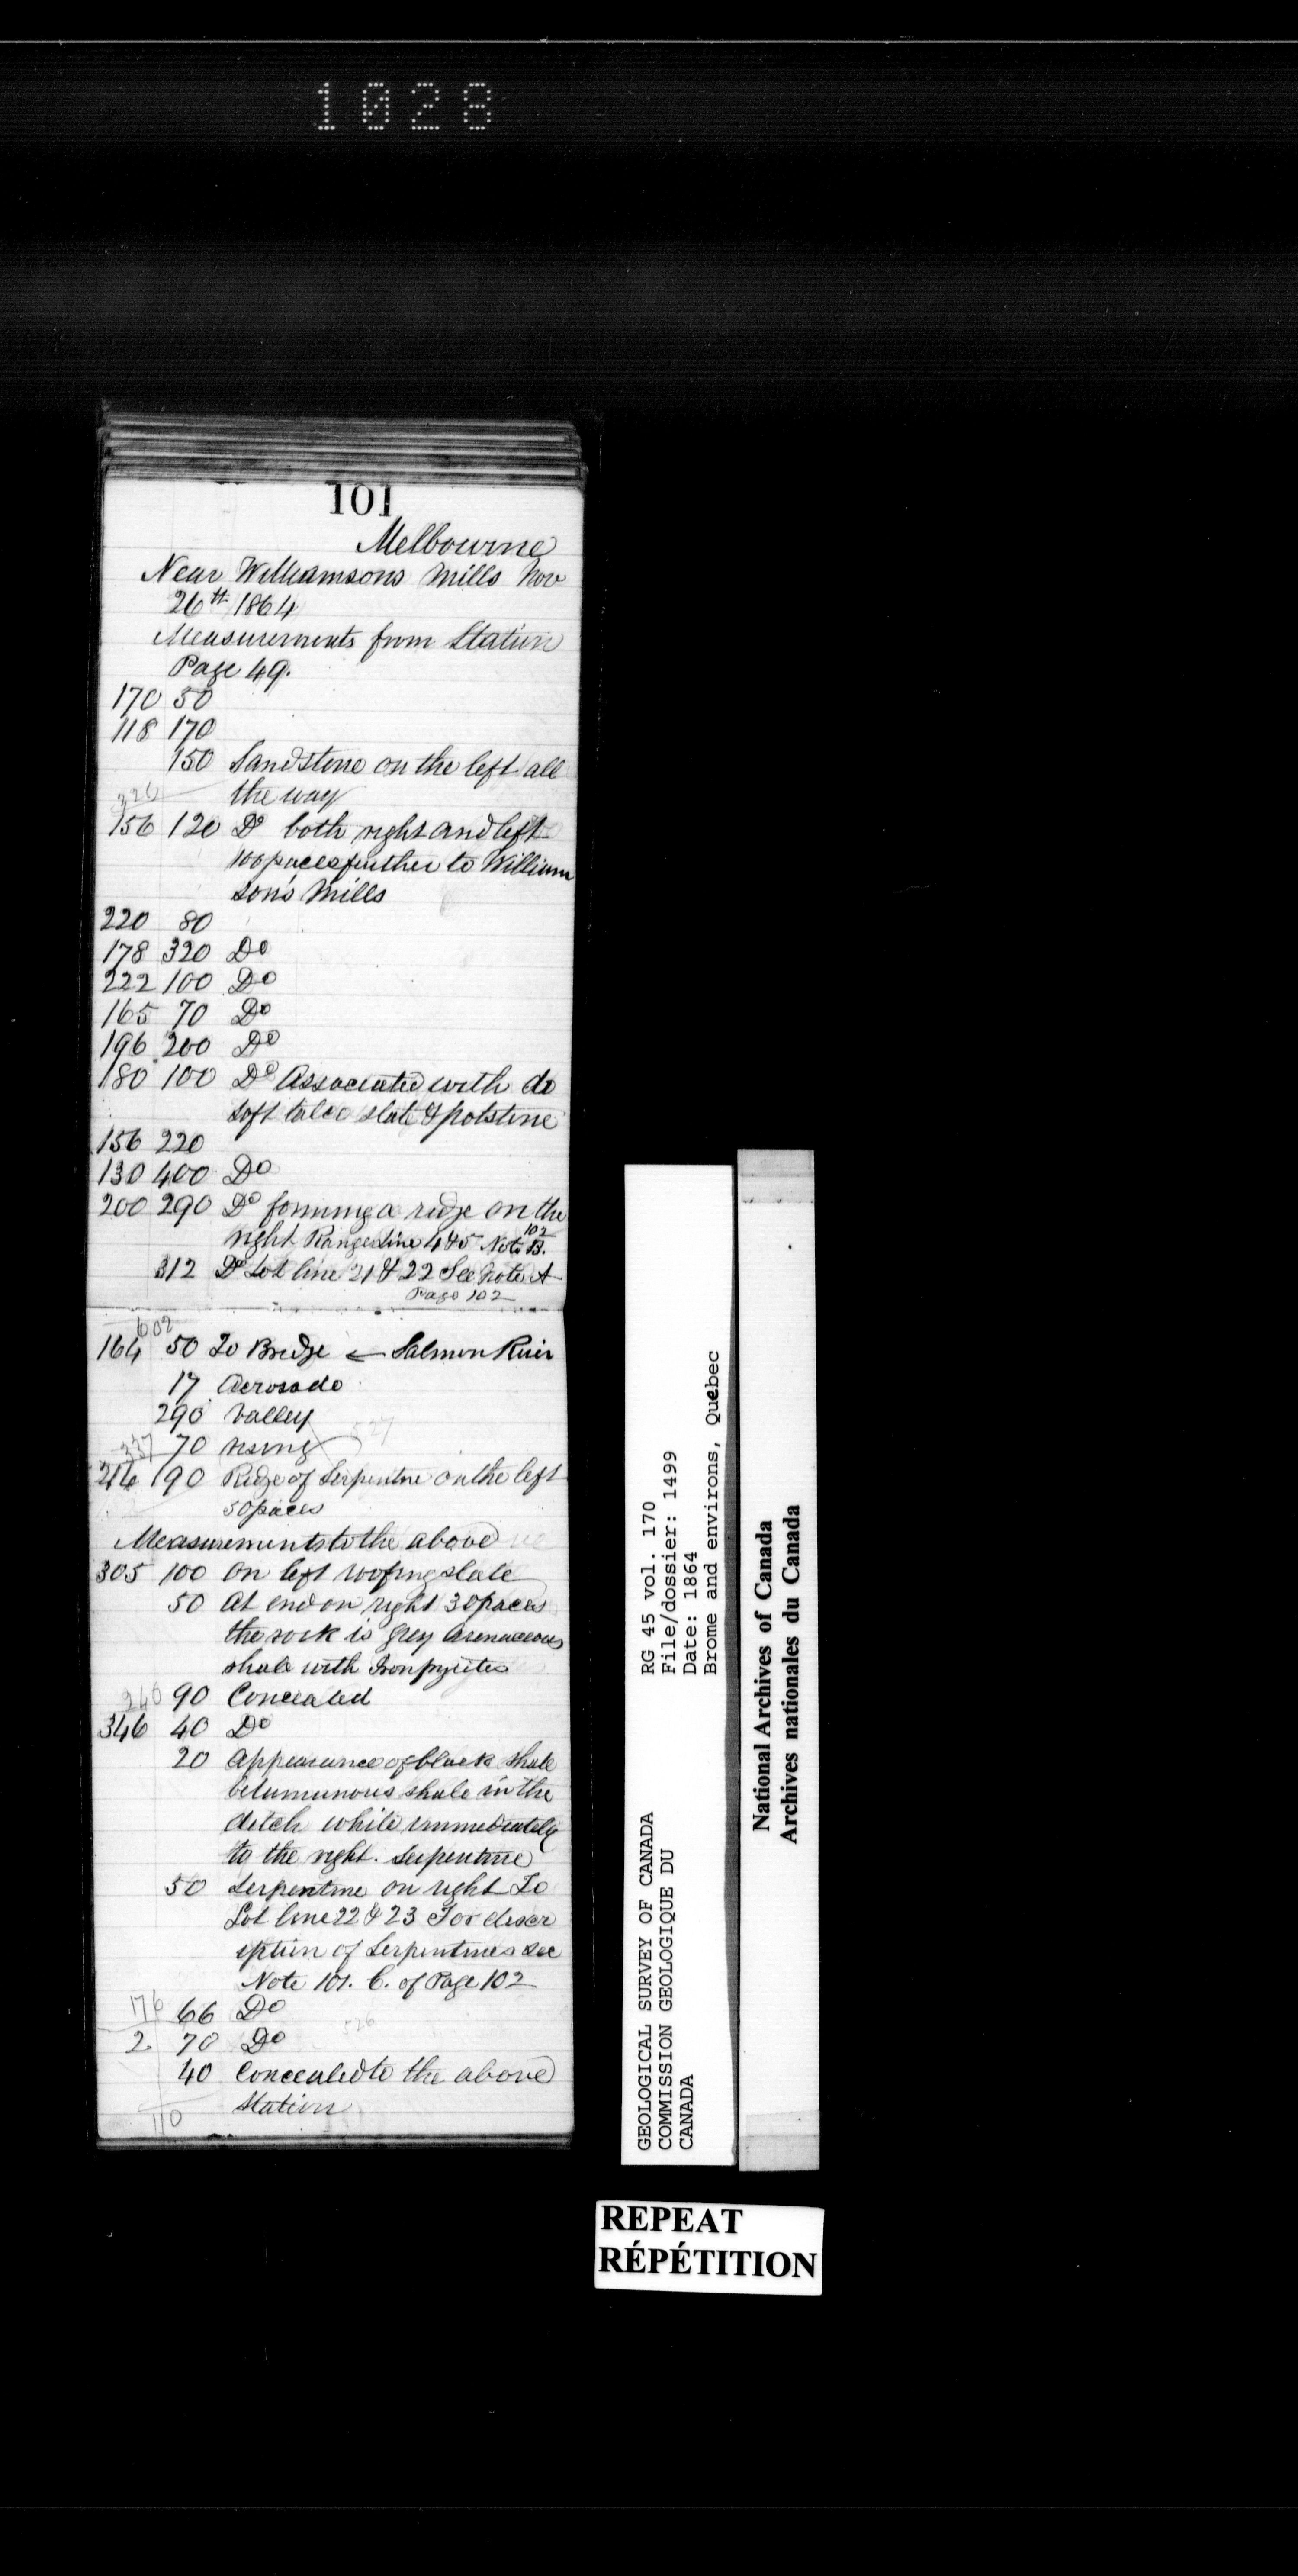 1028
101
Melbourne
Near Williamsons Mills Nov
26th 1864
Measurements from Station
Page 49.
170 50
118 170
150 Sandstone on the left all
the way
326
156 120 Do both right and left
100 paces further to William
son's Mills
220 80
178 320 Do
222 100 Do
165 70 Do
196 200 Do
180 100 Do Associated with do
soft talco slate & potstone
156 220
130 400 Do
200 290 Do forming a ridge on the
right Range Line 4 & 5 Note B. 102
312 Do Lot line 21 & 22 See Note A
Page 102
602
164 50 To Bridge ← Salmon River
17 Across do
290 Valley
337 70 rising 527
216 190 Ridge of Serpentine on the left
50 paces
Measurements to the above
305 100 On left roofing slate
50 At end on right 30 paces
the rock is grey Arenaceous
shale with Iron pyrites
240 90 Concealed
346 40 Do
20 Appearance of black shale
betumunous shale in the
ditch while immediately
to the right. Serpentine
50 Serpentine on right To
Lot line 22 & 23 For descr
iption of Serpentines see
Note 101. C. of Page 102
176 66 Do
2 70 Do 526
40 Concealed to the above
Station
110
GEOLOGICAL SURVEY OF CANADA
COMMISSION GEOLOGIQUE DU
CANADA
RG 45 vol. 170
File/dossier: 1499
Date: 1864
Brome and environs, Quebec
National Archives of Canada
Archives nationales du Canada
REPEAT
RÉPÉTITION